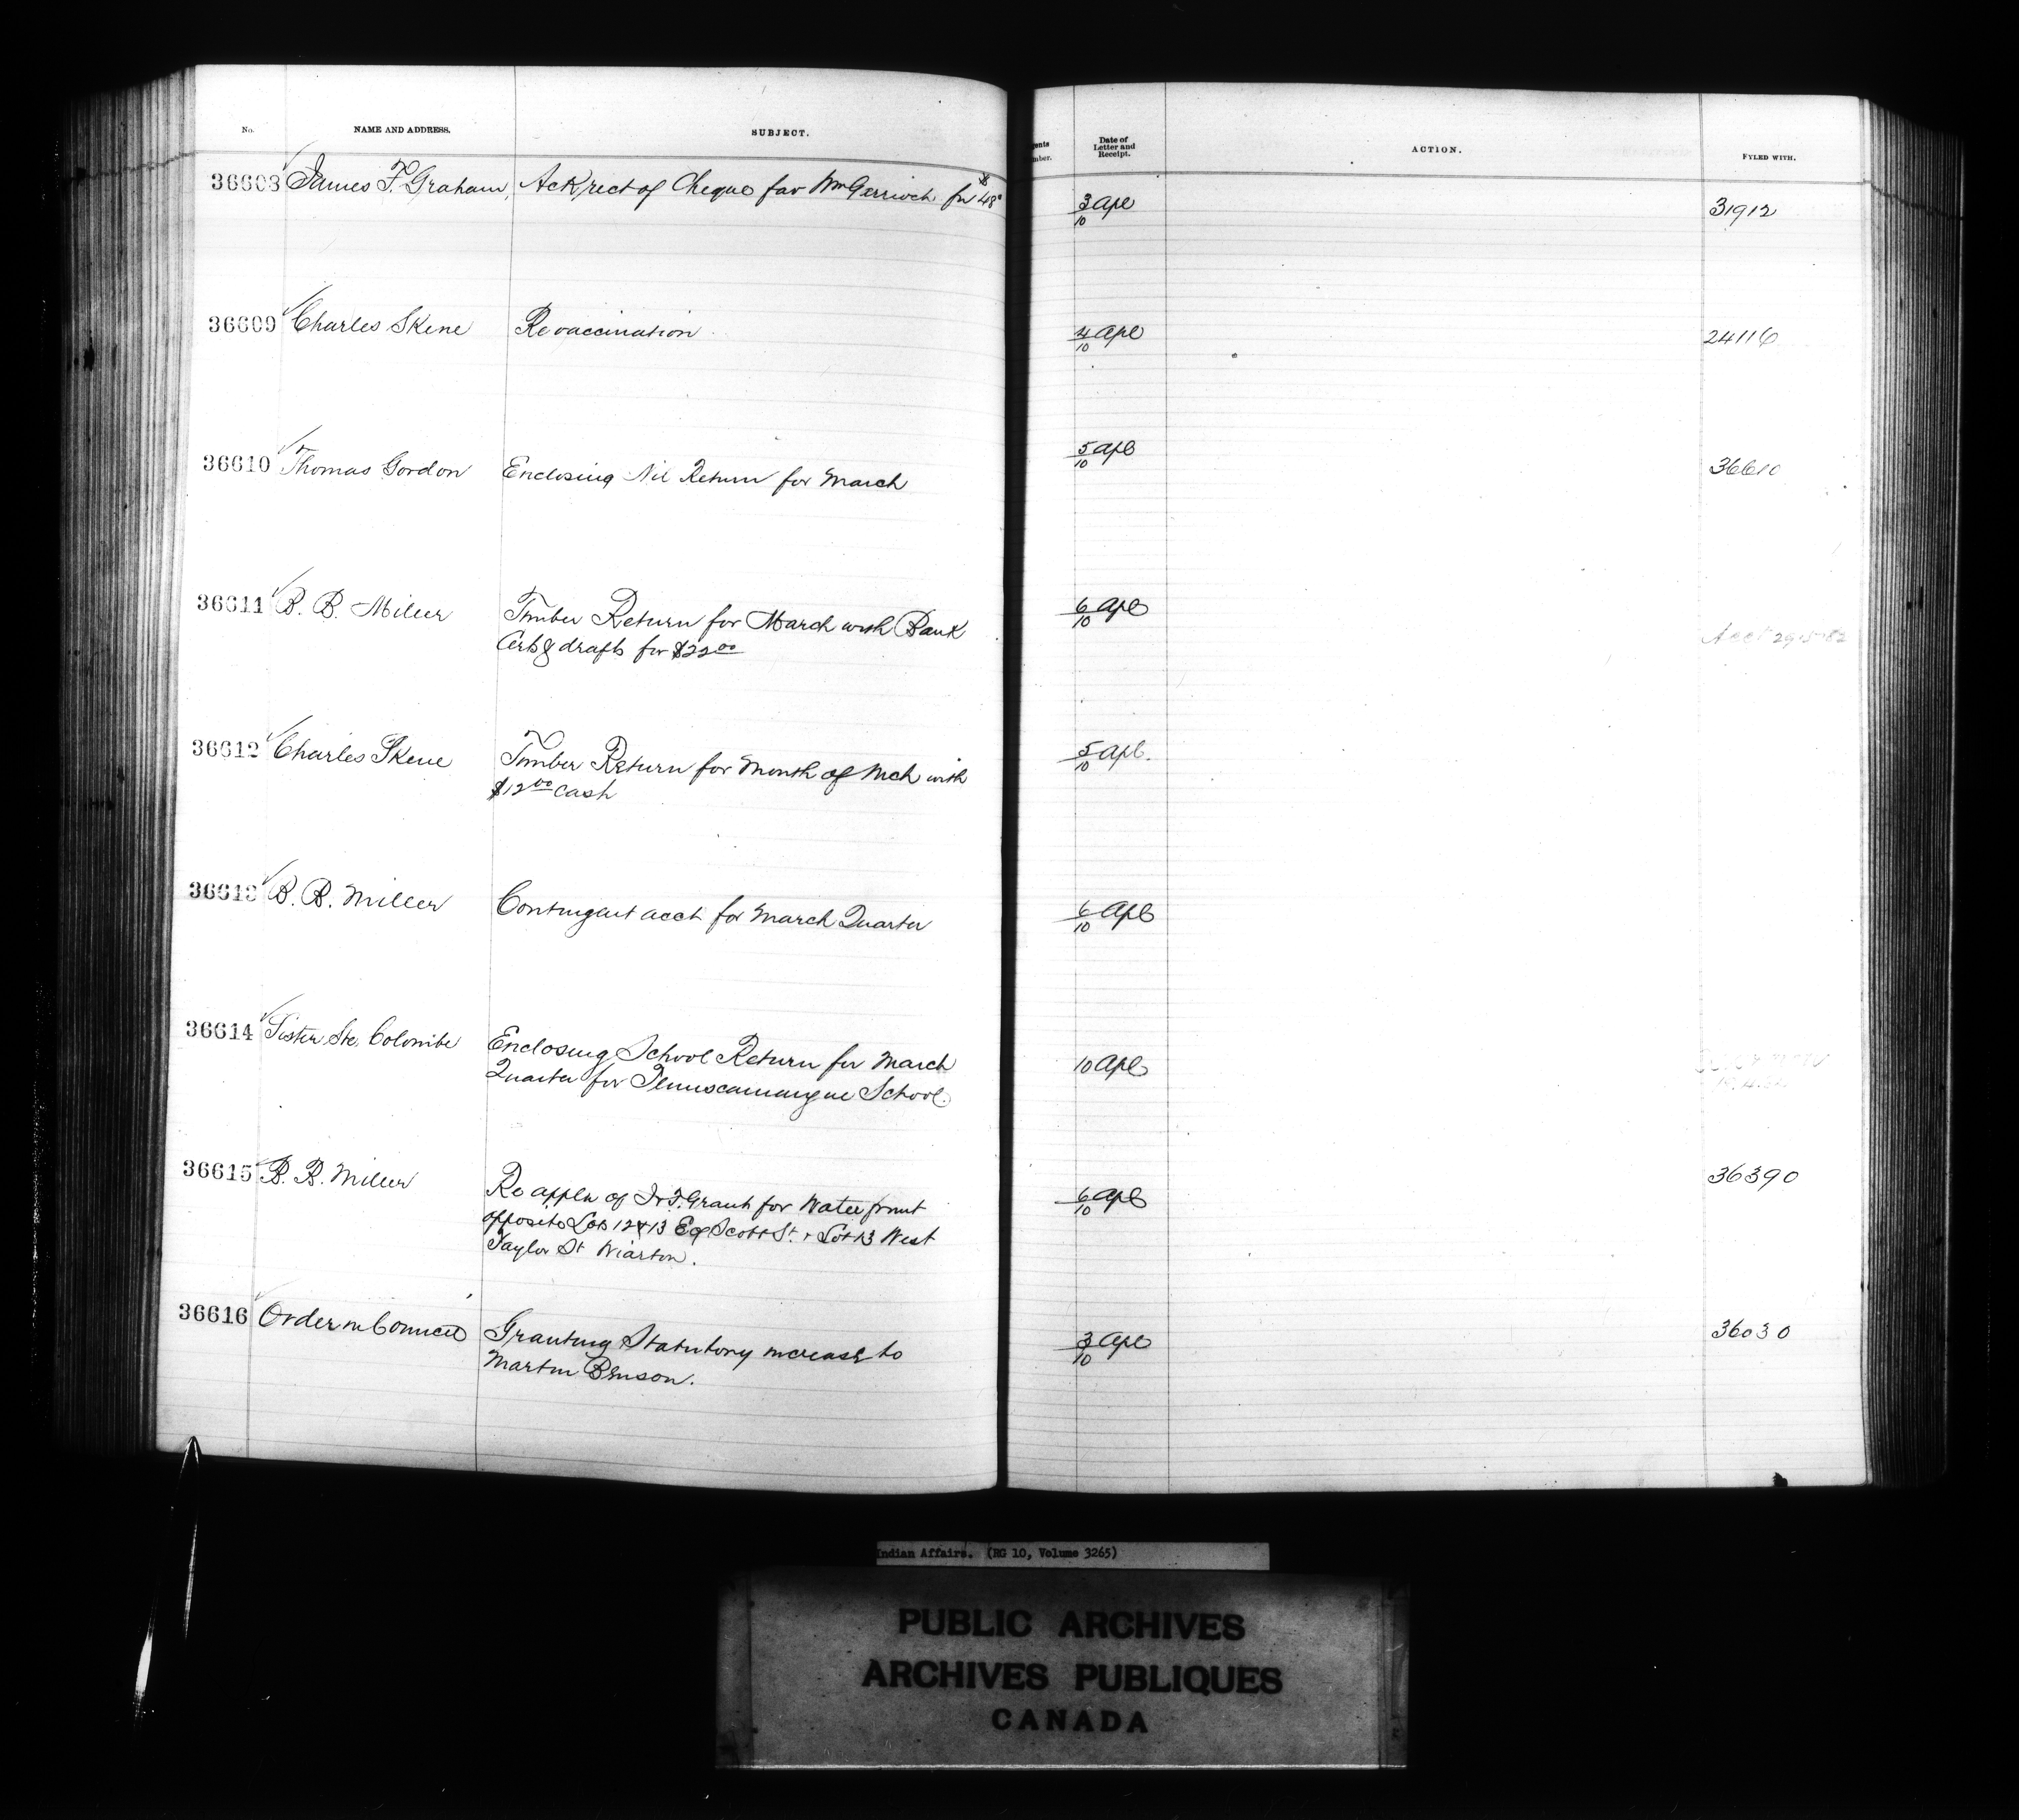 No. NAME AND ADDRESS. SUBJECT. gents mber. Date of Letter and Receipt. ACTION. FYLED WITH.
36608 James F. Graham, Ack rect of Cheque fav Wm for $48 3/10 Apl 31912
36609 Charles Skene Re vaccination 4/10 Apl 24116
36610 Thomas Gordon Enclosing Nil Return for March 5/10 Apl 36610
36611 B. B. Miller Timber Return for March with Bank 6/10 Apl
Certs & drafts for $22.00
36612 Charles Skene Timber Return for Month of Mch with 5/10 Apl.
$12.00 cash
36613 B. B. Miller Contingent acct for March Quarter 6/10 Apl
36614 Sister Ste. Colombe Enclosing School Return for March 10 Apl
Quarter for Temiscamangue School.
36615 B. B. Miller Re appln of Grant for Water front 6/10 Apl 36390
opposite Lots 12 & 13 E of Scott St. & Lot 13 West
Taylor St Wiarton.
36616 Order in Council Granting Statutory increase to 3/10 Apl 36030
Martin Benson.
Indian Affairs. (RG 10, Volume 3265)
PUBLIC ARCHIVES
ARCHIVES PUBLIQUES
CANADA